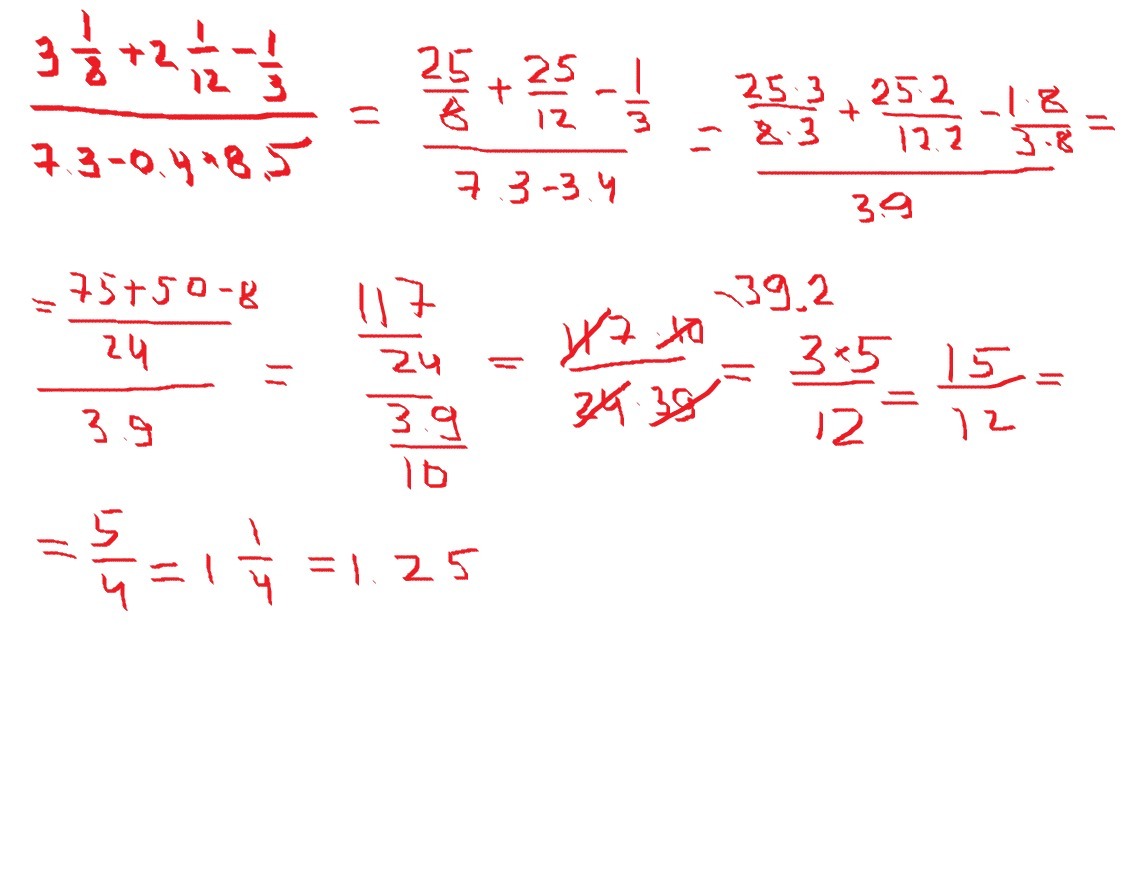 (3 1/8 + 2 1/12 - 1/3) / (7.3 - 0.4 * 8.5) = (25/8 + 25/12 - 1/3) / (7.3 - 3.4) = (25·3/8·3 + 25·2/12·2 - 1·8/3·8) / 3.9 =
= ((75 + 50 - 8)/24) / 3.9 = (117/24) / (3.9/10) = 117·10 / 24·39 = 3×5 / 12 = 15/12 =
39.2
= 5/4 = 1 1/4 = 1.25